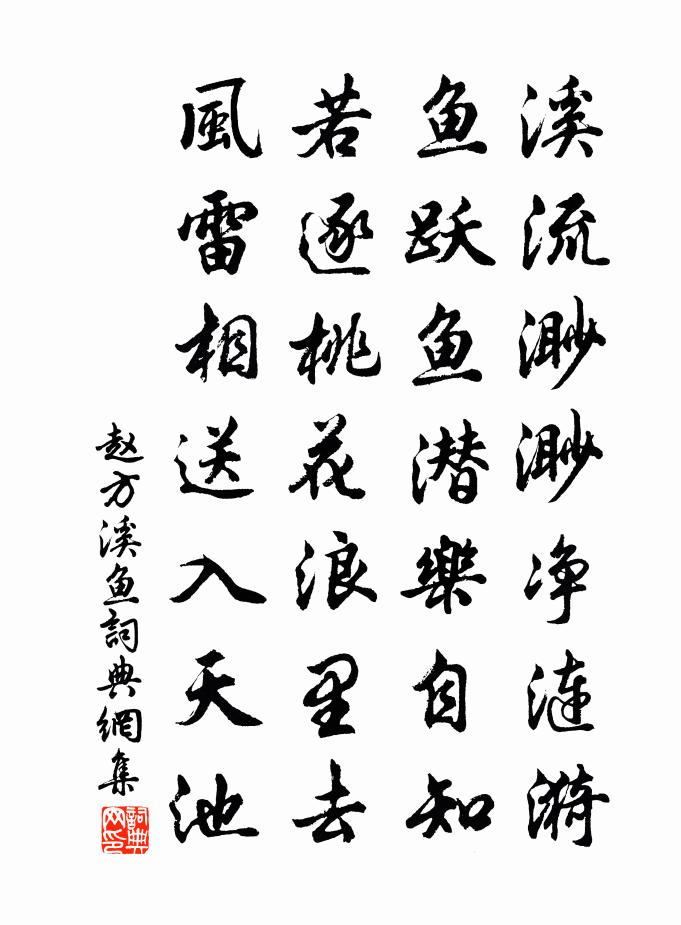 溪流渺渺净涟漪
鱼跃鱼潜樂自知
若逐桃花浪里去
風雷相送入天池
赵方溪鱼詞典網集
詞典网印